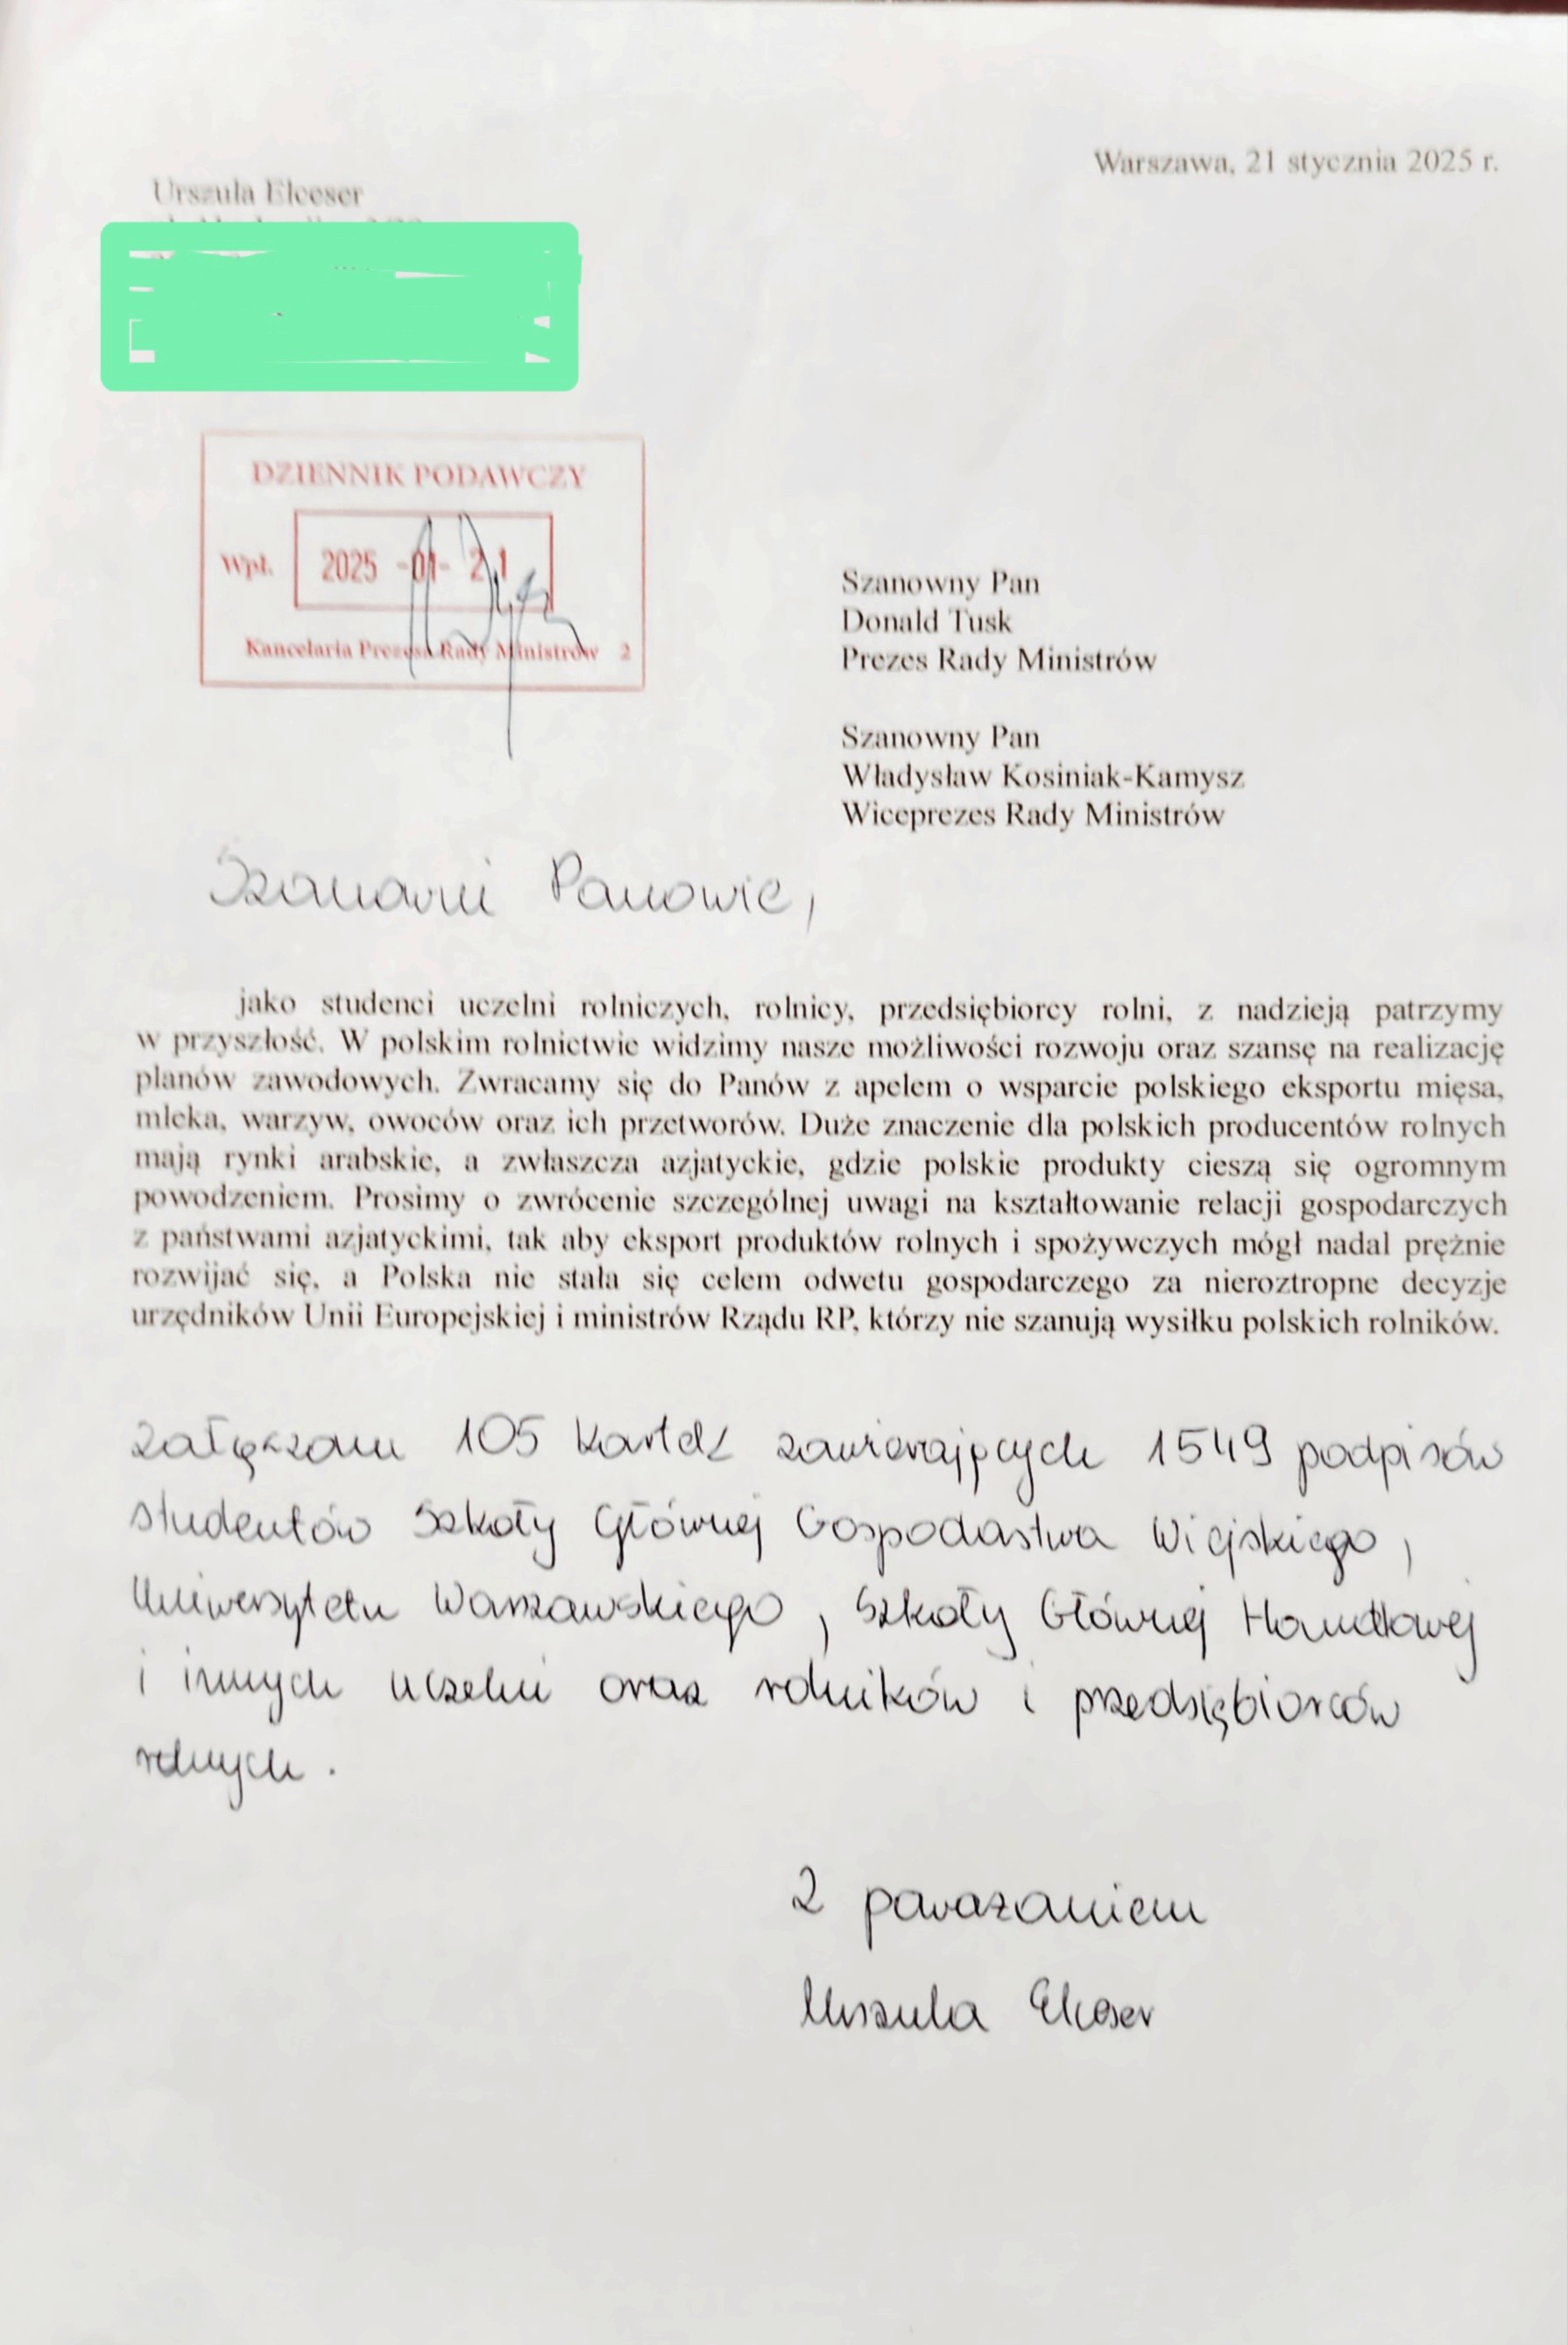 Warszawa, 21 stycznia 2025 r.
Urszula Elceser
DZIENNIK PODAWCZY
Wpł. 2025 -01- 21
Kancelaria Prezesa Rady Ministrów 2
Szanowny Pan
Donald Tusk
Prezes Rady Ministrów
Szanowny Pan
Władysław Kosiniak-Kamysz
Wiceprezes Rady Ministrów
Szanowni Panowie,
jako studenci uczelni rolniczych, rolnicy, przedsiębiorcy rolni, z nadzieją patrzymy
w przyszłość. W polskim rolnictwie widzimy nasze możliwości rozwoju oraz szansę na realizację
planów zawodowych. Zwracamy się do Panów z apelem o wsparcie polskiego eksportu mięsa,
mleka, warzyw, owoców oraz ich przetworów. Duże znaczenie dla polskich producentów rolnych
mają rynki arabskie, a zwłaszcza azjatyckie, gdzie polskie produkty cieszą się ogromnym
powodzeniem. Prosimy o zwrócenie szczególnej uwagi na kształtowanie relacji gospodarczych
z państwami azjatyckimi, tak aby eksport produktów rolnych i spożywczych mógł nadal prężnie
rozwijać się, a Polska nie stała się celem odwetu gospodarczego za nieroztropne decyzje
urzędników Unii Europejskiej i ministrów Rządu RP, którzy nie szanują wysiłku polskich rolników.
Załączam 105 kartek zawierających 1549 podpisów
studentów Szkoły Głównej Gospodarstwa Wiejskiego,
Uniwersytetu Warszawskiego, Szkoły Głównej Handlowej
i innych uczelni oraz rolników i przedsiębiorców
rolnych.
Z poważaniem
Urszula Elceser